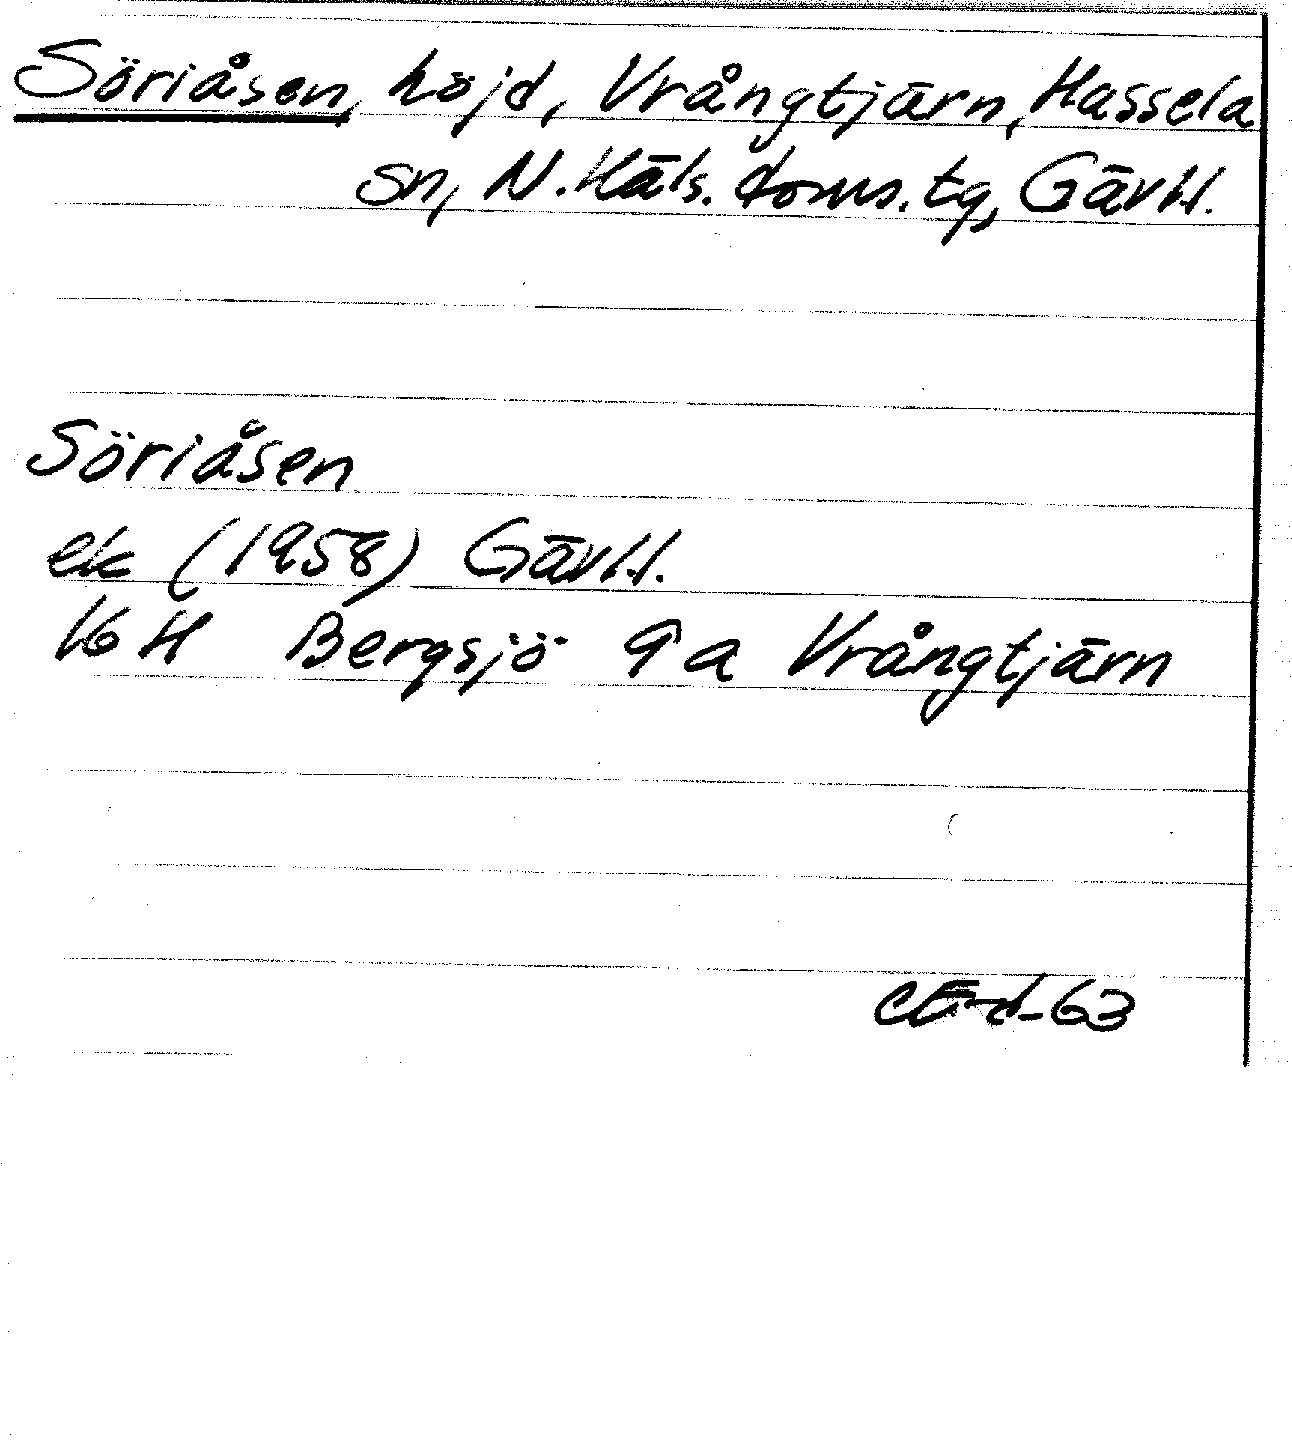 Söriåsen, höjd, Vrångtjärn, Hassela
sn, N. Häls. doms. tg, Gävl.l.
Söriåsen
ek (1958) Gävl.l.
16 H Bergsjö 9 a Vrångtjärn
CE-d-63